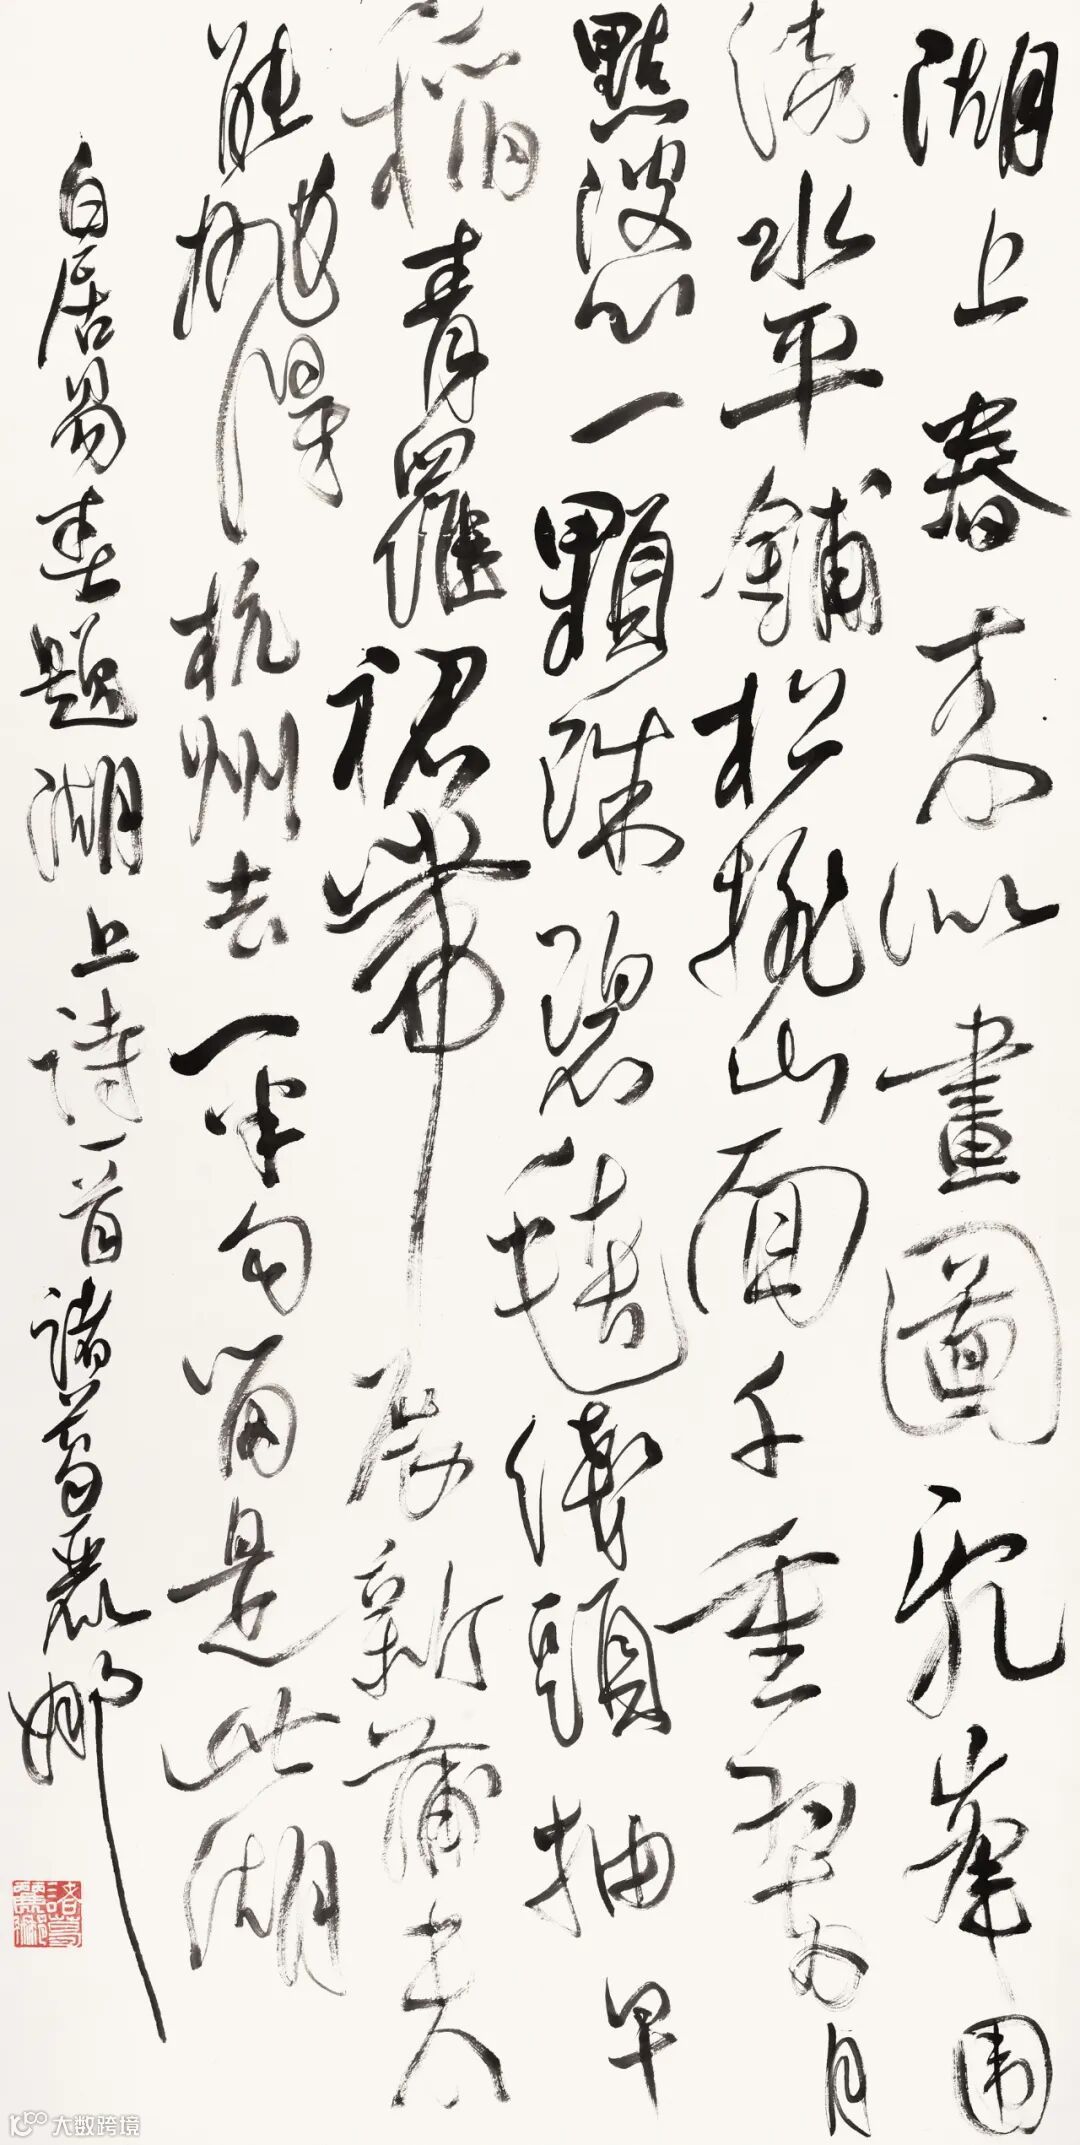 湖上春来似畫圖乱峯围
绕水平鋪松排山面千重翠月
點波心一顆珠碧毯綫頭抽早
稻青羅裙帶展新蒲未
能抛得杭州去一半勾留是此湖
白居易春題湖上诗一首諸葛麗娜
諸葛麗娜
大数跨境